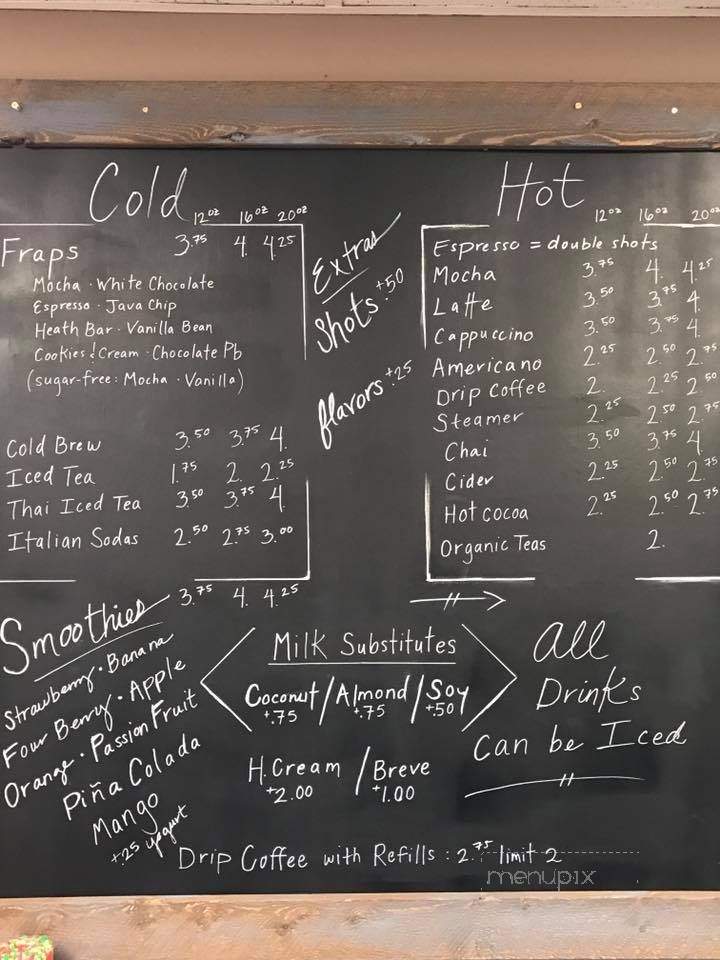 Cold
12oz 16oz 20oz
Fraps 3.75 4. 4.25
Mocha · White Chocolate
Espresso · Java Chip
Heath Bar · Vanilla Bean
Cookies & Cream · Chocolate Pb
(sugar-free: Mocha · Vanilla)
Cold Brew 3.50 3.75 4.
Iced Tea 1.75 2. 2.25
Thai Iced Tea 3.50 3.75 4.
Italian Sodas 2.50 2.75 3.00
Extras
Shots +.50
flavors +.25
Hot
12oz 16oz 20oz
Espresso = double shots
Mocha 3.75 4. 4.25
Latte 3.50 3.75 4.
Cappuccino 3.50 3.75 4.
Americano 2.25 2.50 2.75
Drip Coffee 2. 2.25 2.50
Steamer 2.25 2.50 2.75
Chai 3.50 3.75 4.
Cider 2.25 2.50 2.75
Hot cocoa 2.25 2.50 2.75
Organic Teas 2.
Smoothies 3.75 4. 4.25
Strawberry · Banana
Four Berry · Apple
Orange · Passion Fruit
Piña Colada
Mango
+.25 yogurt
Milk Substitutes
Coconut / Almond / Soy
+.75 +.75 +.50
H. Cream / Breve
+2.00 +1.00
all
Drinks
can be Iced
Drip Coffee with Refills : 2.75 limit 2
menupix